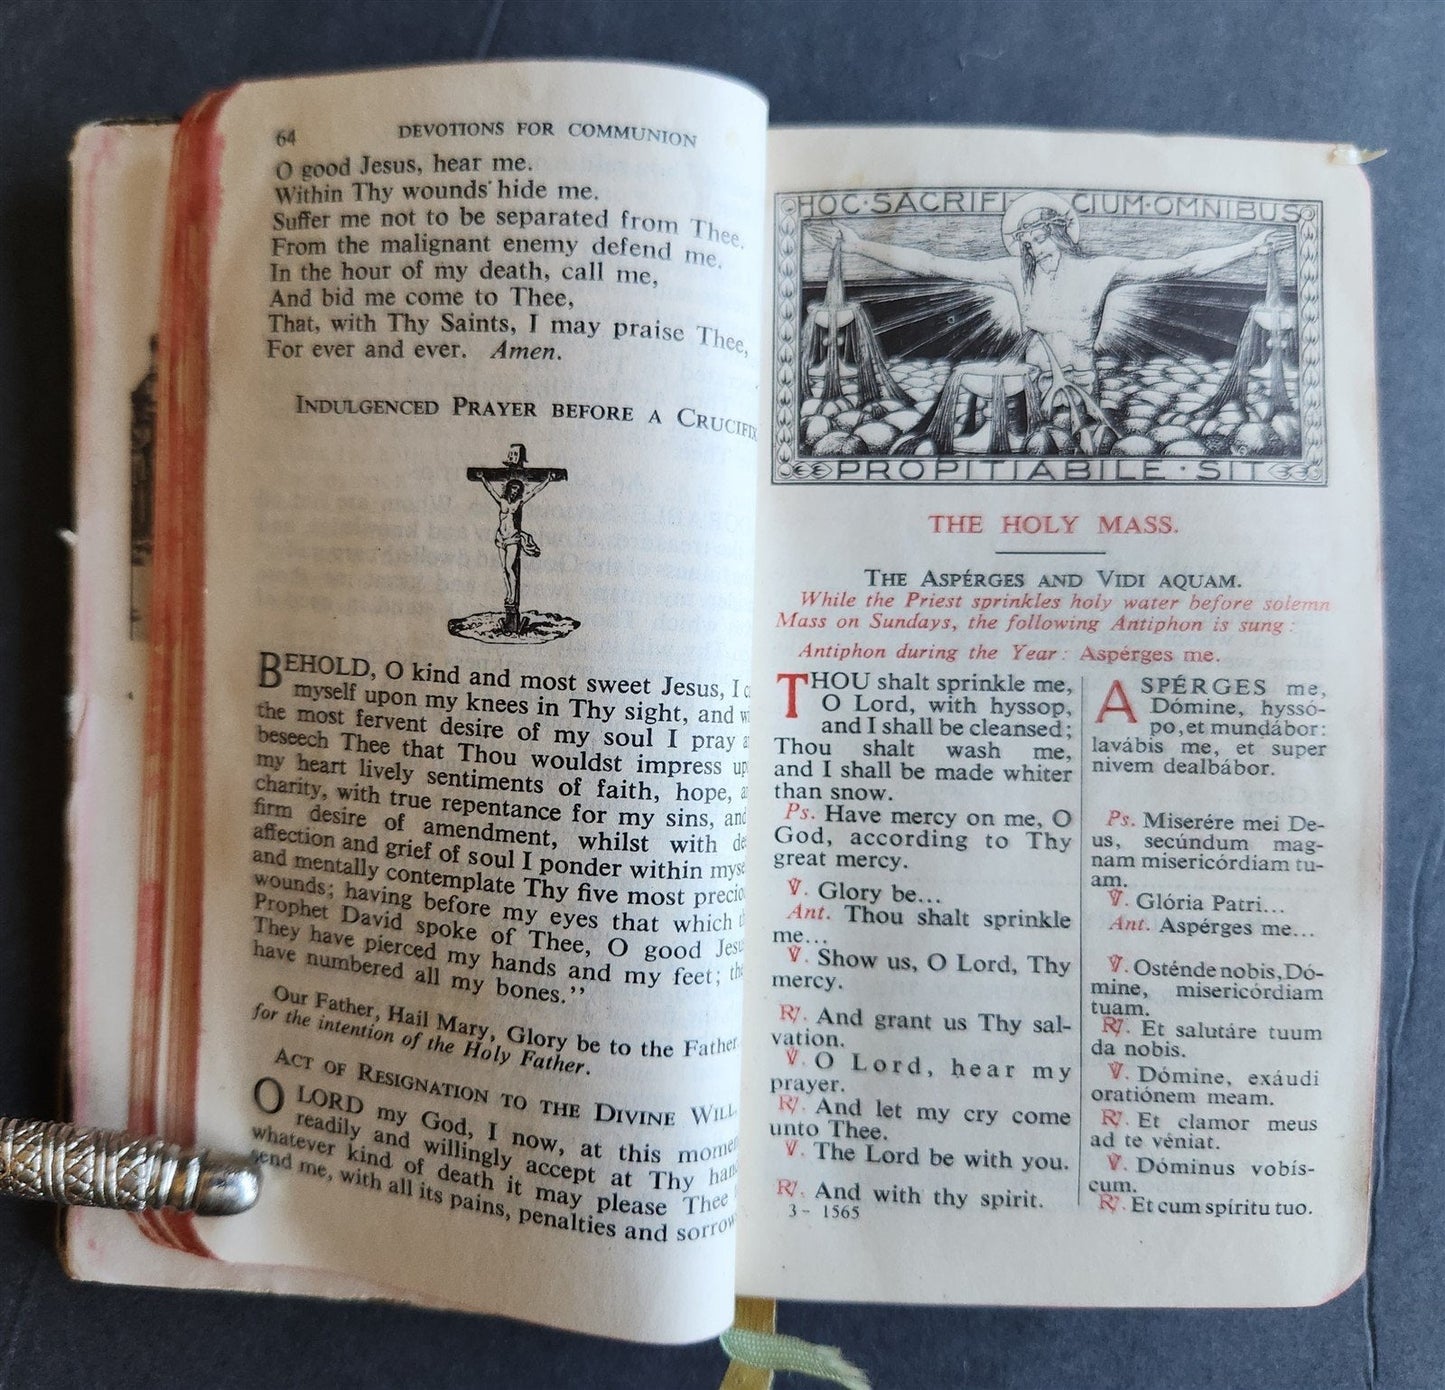 64 DEVOTIONS FOR COMMUNION
O good Jesus, hear me.
Within Thy wounds hide me.
Suffer me not to be separated from Thee.
From the malignant enemy defend me.
In the hour of my death, call me,
And bid me come to Thee,
That, with Thy Saints, I may praise Thee,
For ever and ever. Amen.
INDULGENCED PRAYER BEFORE A CRUCIFIX
BEHOLD, O kind and most sweet Jesus, I
myself upon my knees in Thy sight, and
the most fervent desire of my soul I pray
beseech Thee that Thou wouldst impress
my heart lively sentiments of faith, hope,
charity, with true repentance for my sins, and
firm desire of amendment, whilst with
affection and grief of soul I ponder within
and mentally contemplate Thy five most
wounds; having before my eyes that which
Prophet David spoke of Thee, O good
They have pierced my hands and my feet;
have numbered all my bones.”
Our Father, Hail Mary, Glory be to the Father
for the intention of the Holy Father.
ACT OF RESIGNATION TO THE DIVINE WILL
O LORD my God, I now, at this
readily and willingly accept at Thy
whatever kind of death it may please Thee
send me, with all its pains, penalties and
HOC·SACRIFICIUM·OMNIBUS
PROPITIABILE·SIT
THE HOLY MASS.
THE ASPÉRGES AND VIDI AQUAM.
While the Priest sprinkles holy water before solemn
Mass on Sundays, the following Antiphon is sung:
Antiphon during the Year: Aspérges me.
THOU shalt sprinkle me,
O Lord, with hyssop,
and I shall be cleansed;
Thou shalt wash me,
and I shall be made whiter
than snow.
Ps. Have mercy on me, O
God, according to Thy
great mercy.
℣. Glory be...
Ant. Thou shalt sprinkle
me...
℣. Show us, O Lord, Thy
mercy.
℟. And grant us Thy sal-
vation.
℣. O Lord, hear my
prayer.
℟. And let my cry come
unto Thee.
℣. The Lord be with you.
℟. And with thy spirit.
3 – 1565
ASPÉRGES me,
Dómine, hyssó-
po, et mundábor:
lavábis me, et super
nivem dealbábor.
Ps. Miserére mei De-
us, secúndum mag-
nam misericórdiam tu-
am.
℣. Glória Patri...
Ant. Aspérges me...
℣. Osténde nobis, Dó-
mine, misericórdiam
tuam.
℟. Et salutáre tuum
da nobis.
℣. Dómine, exáudi
oratiónem meam.
℟. Et clamor meus
ad te véniat.
℣. Dóminus vobís-
cum.
℟. Et cum spíritu tuo.